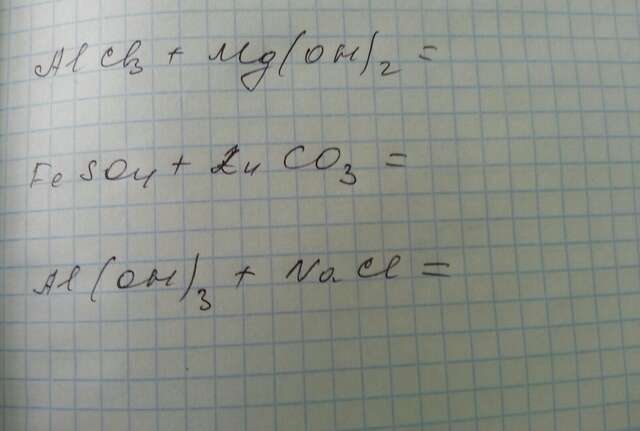 AlCl₃ + Mg(OH)₂ =
FeSO₄ + ZnCO₃ =
Al(OH)₃ + NaCl =